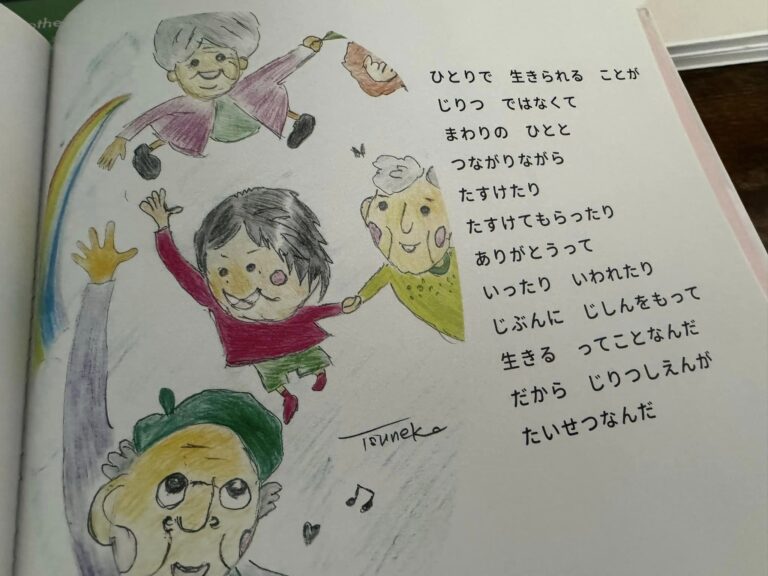 ひとりで　生きられる　ことが
じりつ　ではなくて
まわりの　ひとと
つながりながら
たすけたり
たすけてもらったり
ありがとうって
いったり　いわれたり
じぶんに　じしんをもって
生きる　ってことなんだ
だから　じりつしえんが
たいせつなんだ
Tsuneko